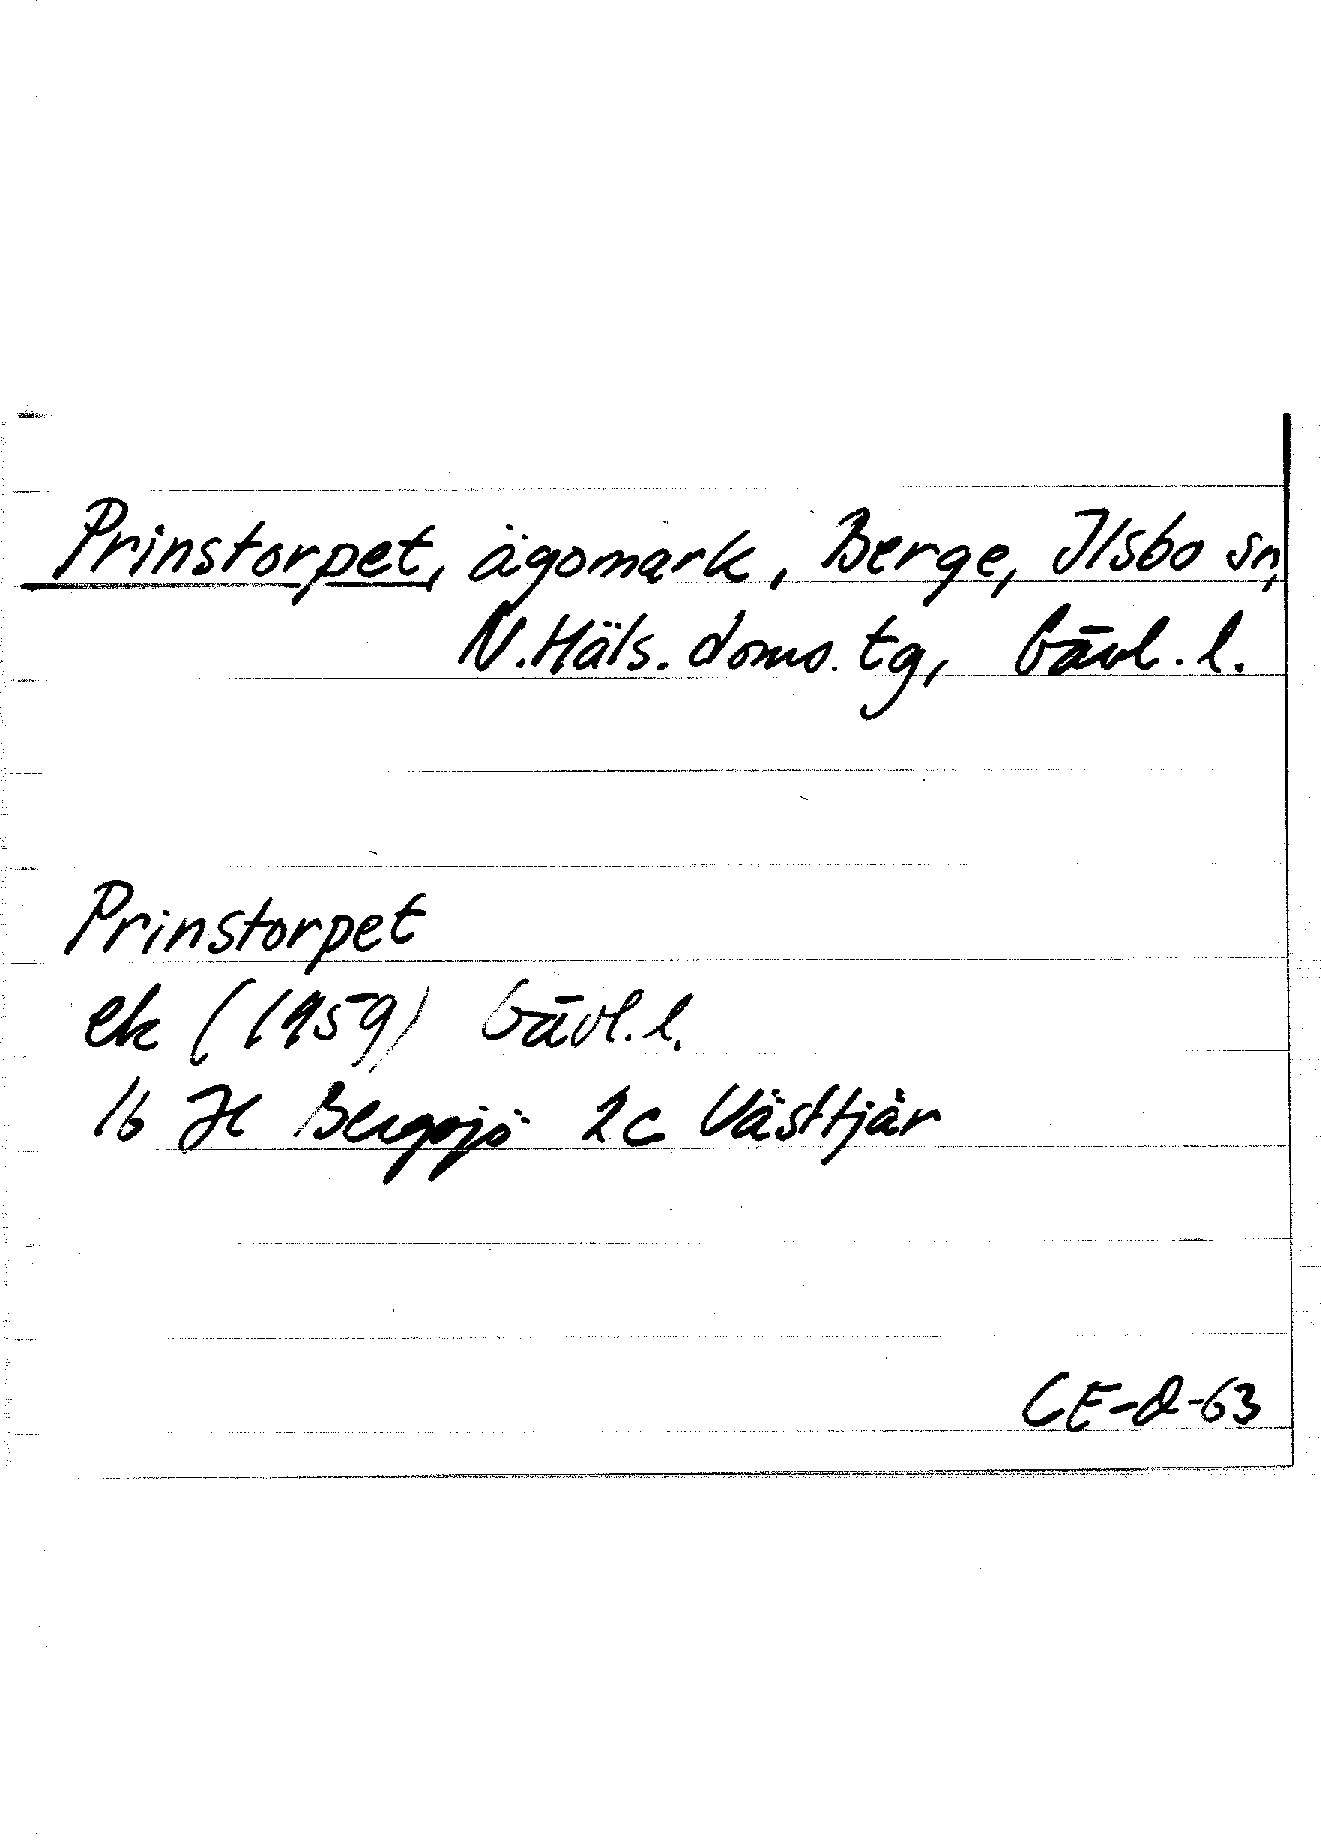 Prinstorpet, ägomark, Berge, Ilsbo sn,
N. Häls. doms. tg, Gävl. l.
Prinstorpet
ek (1959) Gävl. l.
16 H Bergsjö 2c Västtjär
CE-d-63